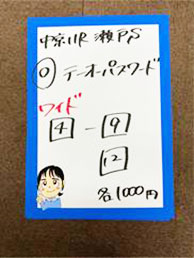 中京11R 瀬PS
◎ テーオーパスワード
ワイド
4 - 9
12
各1000円